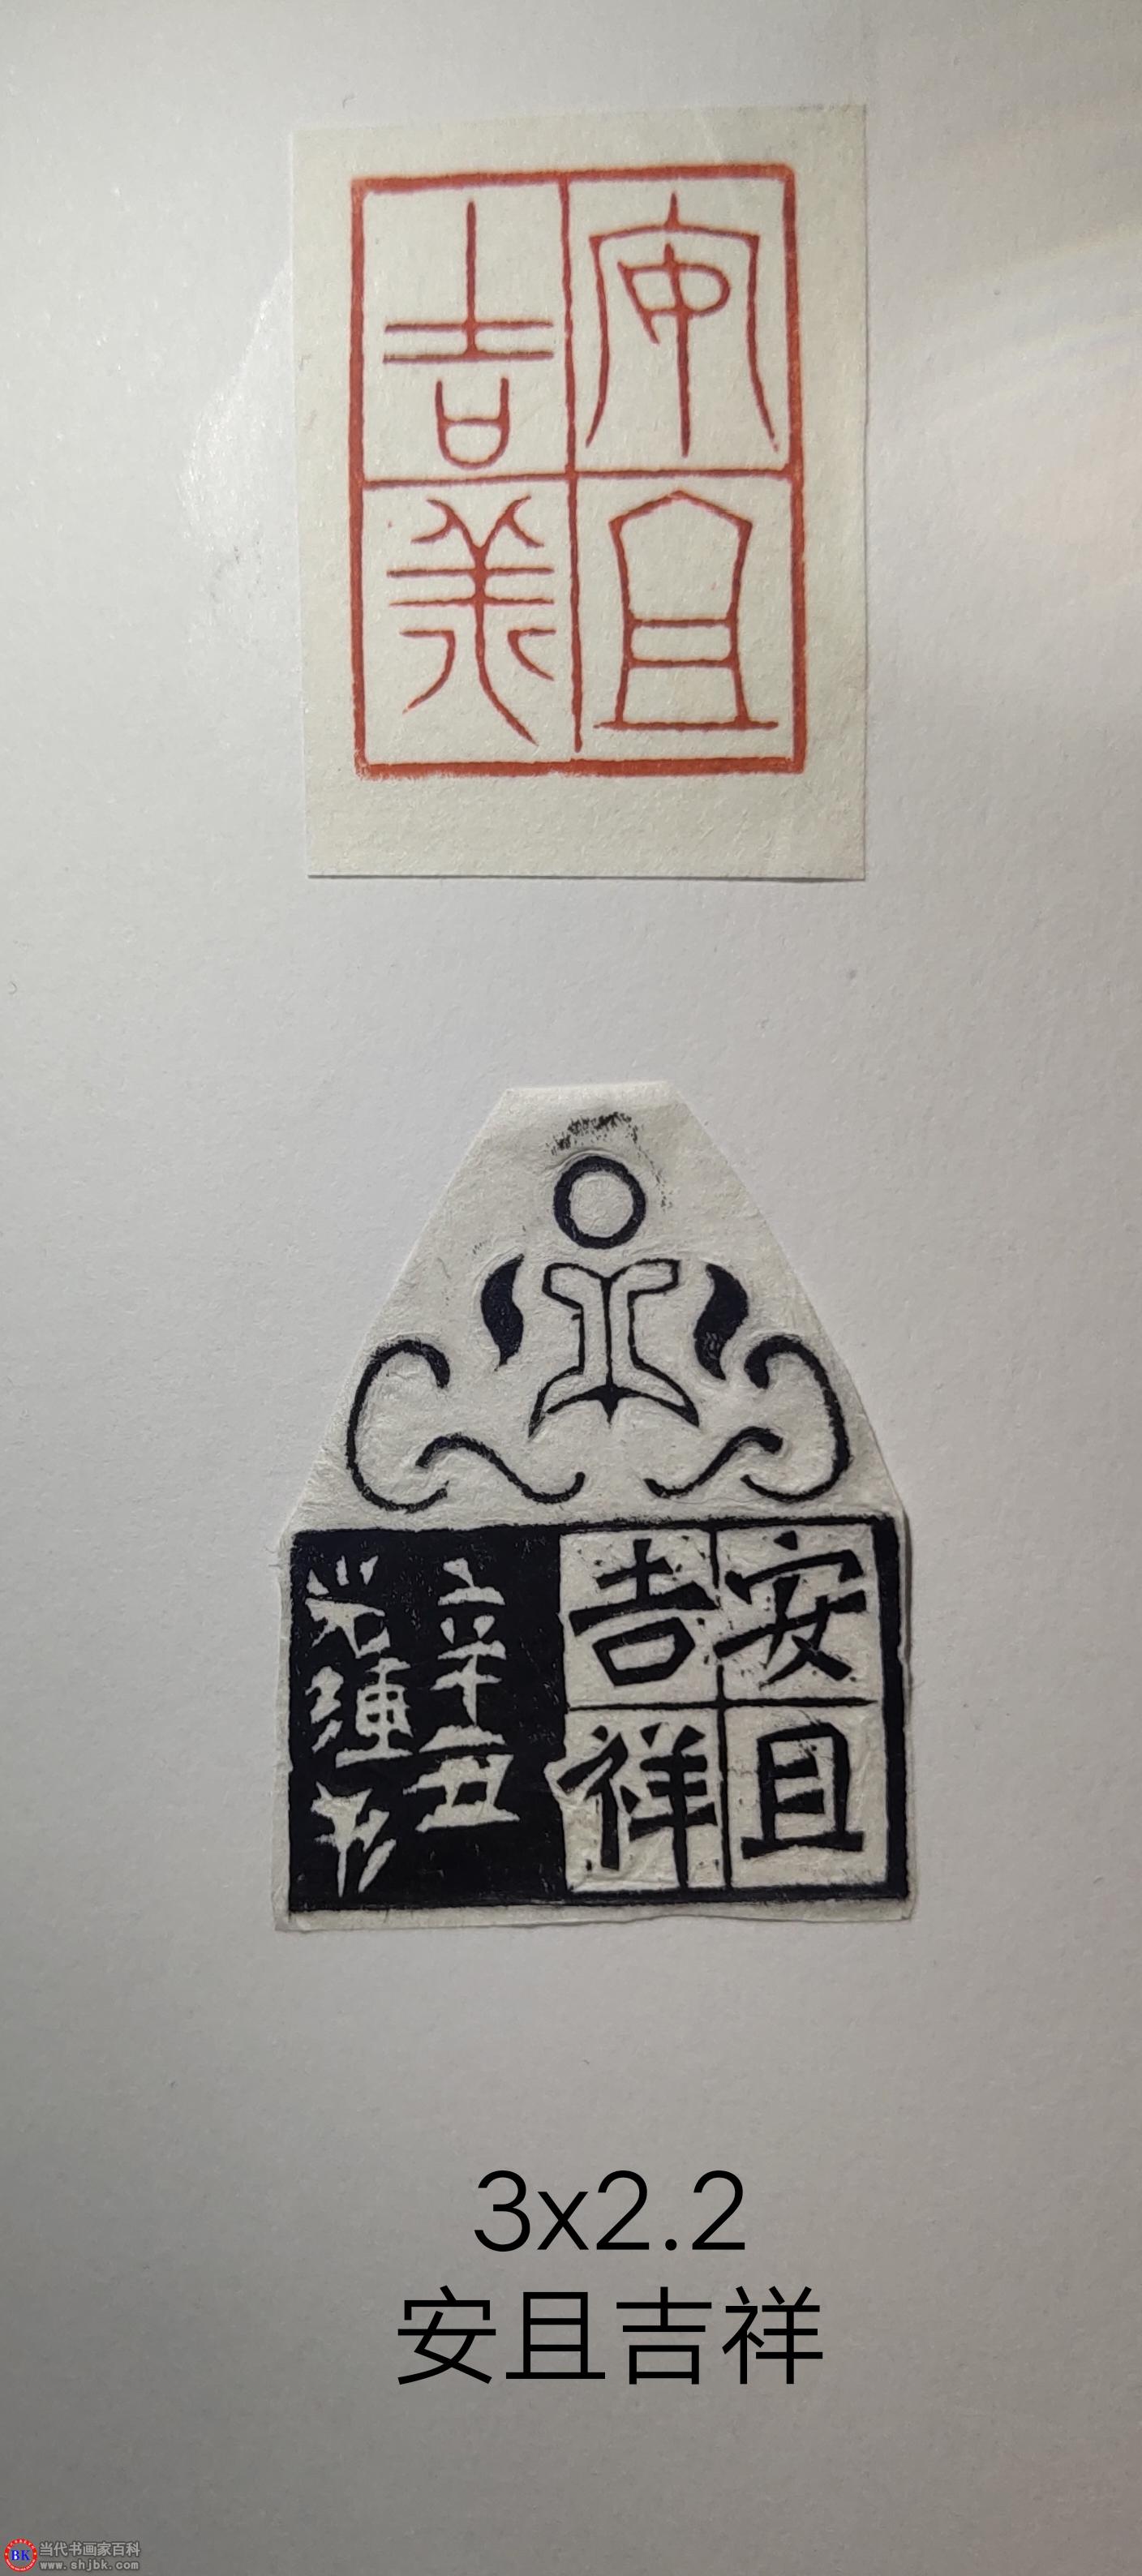 安且
吉羊
安且
吉祥
辛丑
光運刊
3x2.2
安且吉祥
BK 当代书画家百科
www.shjbk.com